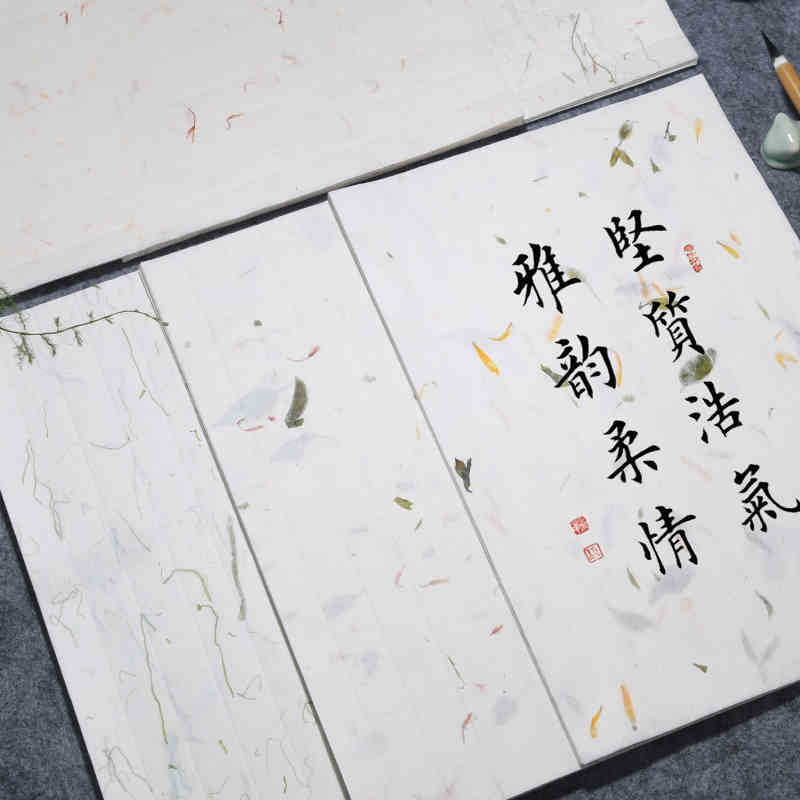 堅質浩氣
雅韵柔情